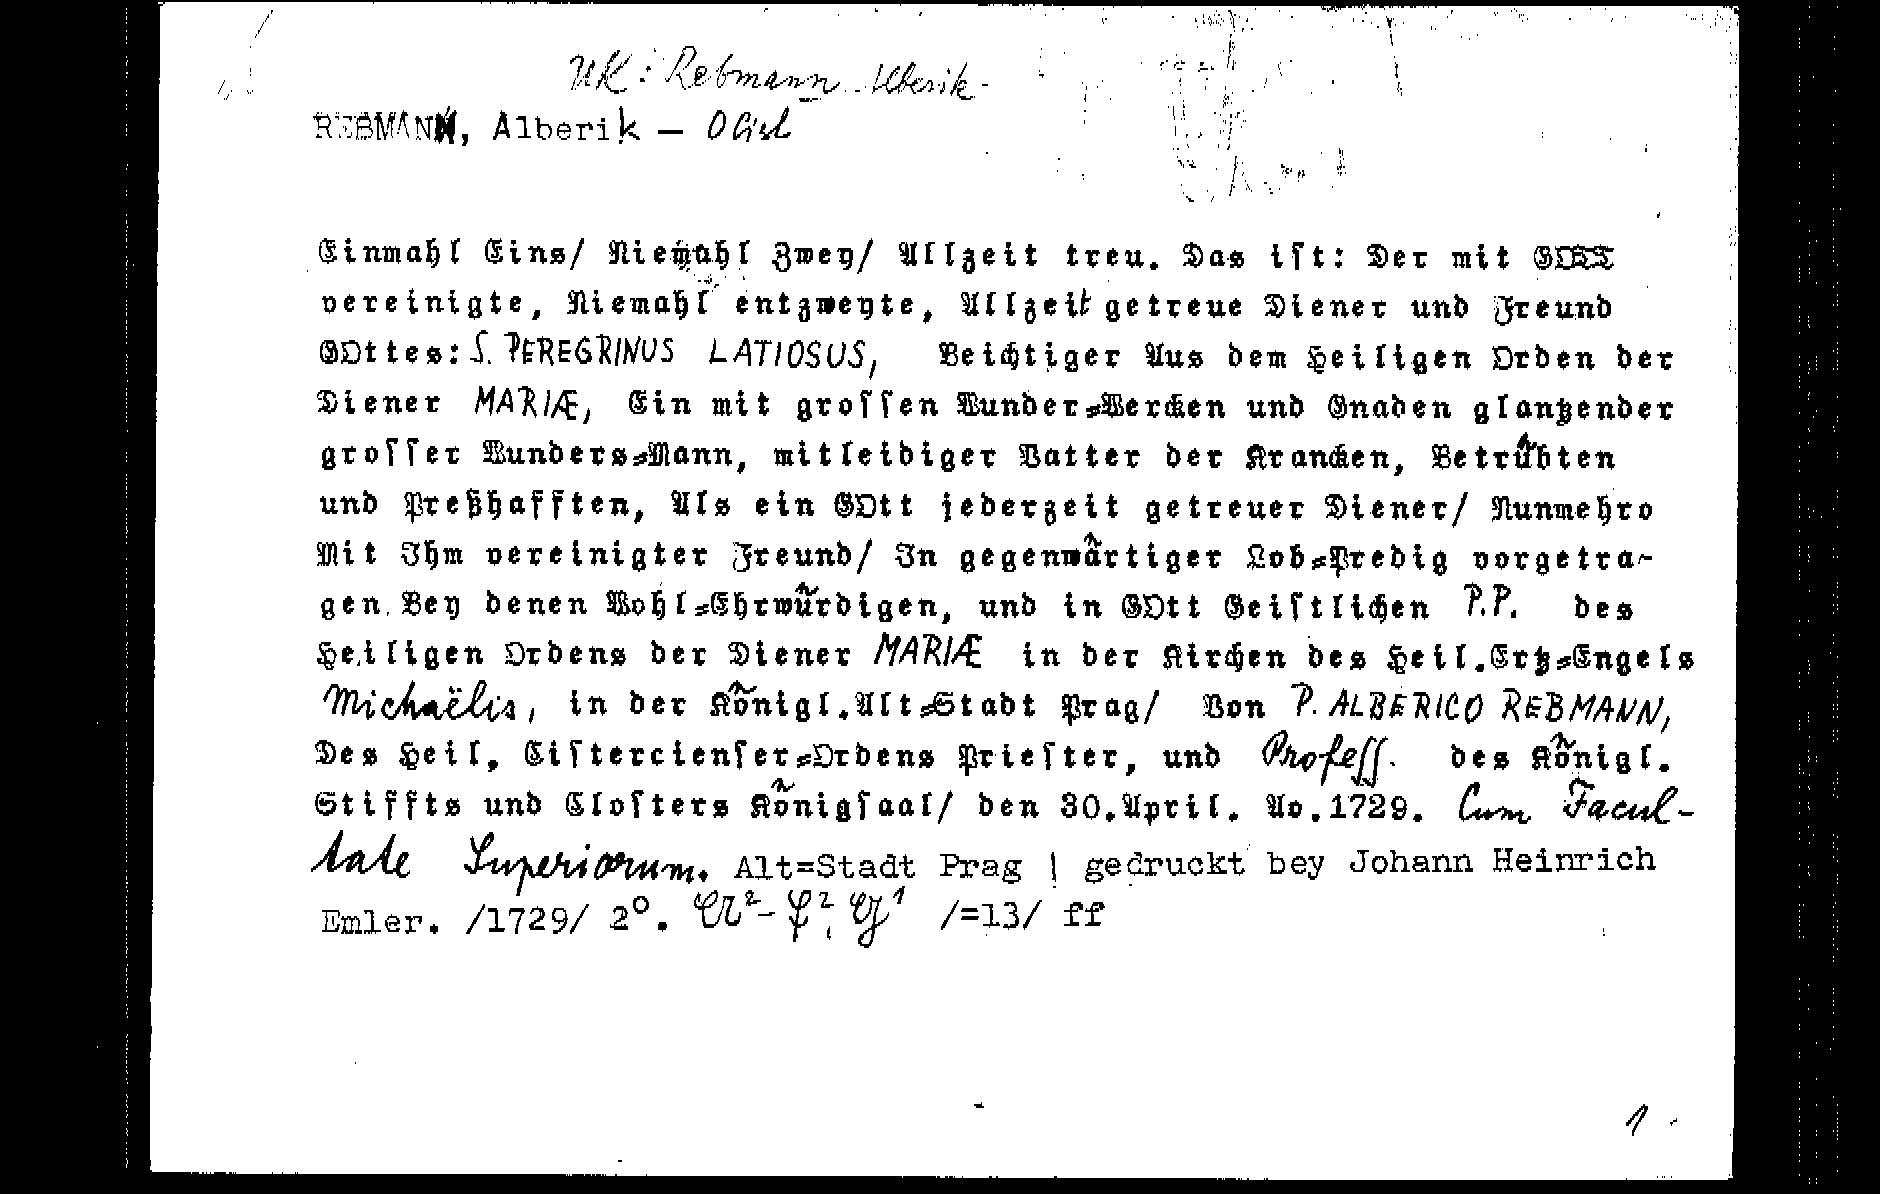 UK: Rebmann Alberik
REBMANN, Alberik — OCist
Einmahl Eins/ Niemahl Zwey/ Allzeit treu. Das ist: Der mit GOTT
vereinigte, Niemahl entzweyte, Allzeit getreue Diener und Freund
GOttes: S. PEREGRINUS LATIOSUS, Beichtiger Aus dem Heiligen Orden der
Diener MARIÆ, Ein mit grossen Wunder=Wercken und Gnaden glantzender
grosser Wunders=Mann, mitleidiger Vatter der Krancken, Betrübten
und Preßhafften, Als ein GOtt jederzeit getreuer Diener/ Nunmehro
Mit Ihm vereinigter Freund/ In gegenwärtiger Lob=Predig vorgetra-
gen. Bey denen Wohl=Ehrwürdigen, und in GOtt Geistlichen P.P. des
Heiligen Ordens der Diener MARIÆ in der Kirchen des Heil.Ertz=Engels
Michaëlis, in der Königl.Alt=Stadt Prag/ Von P. ALBERICO REBMANN,
Des Heil. Cistercienser=Ordens Priester, und Profess. des Königl.
Stiffts und Closters Königsaal/ den 30.April. Ao.1729. Cum Facul-
tate Superiorum. Alt=Stadt Prag | gedruckt bey Johann Heinrich
Emler. /1729/ 2°. /=13/ ff
1